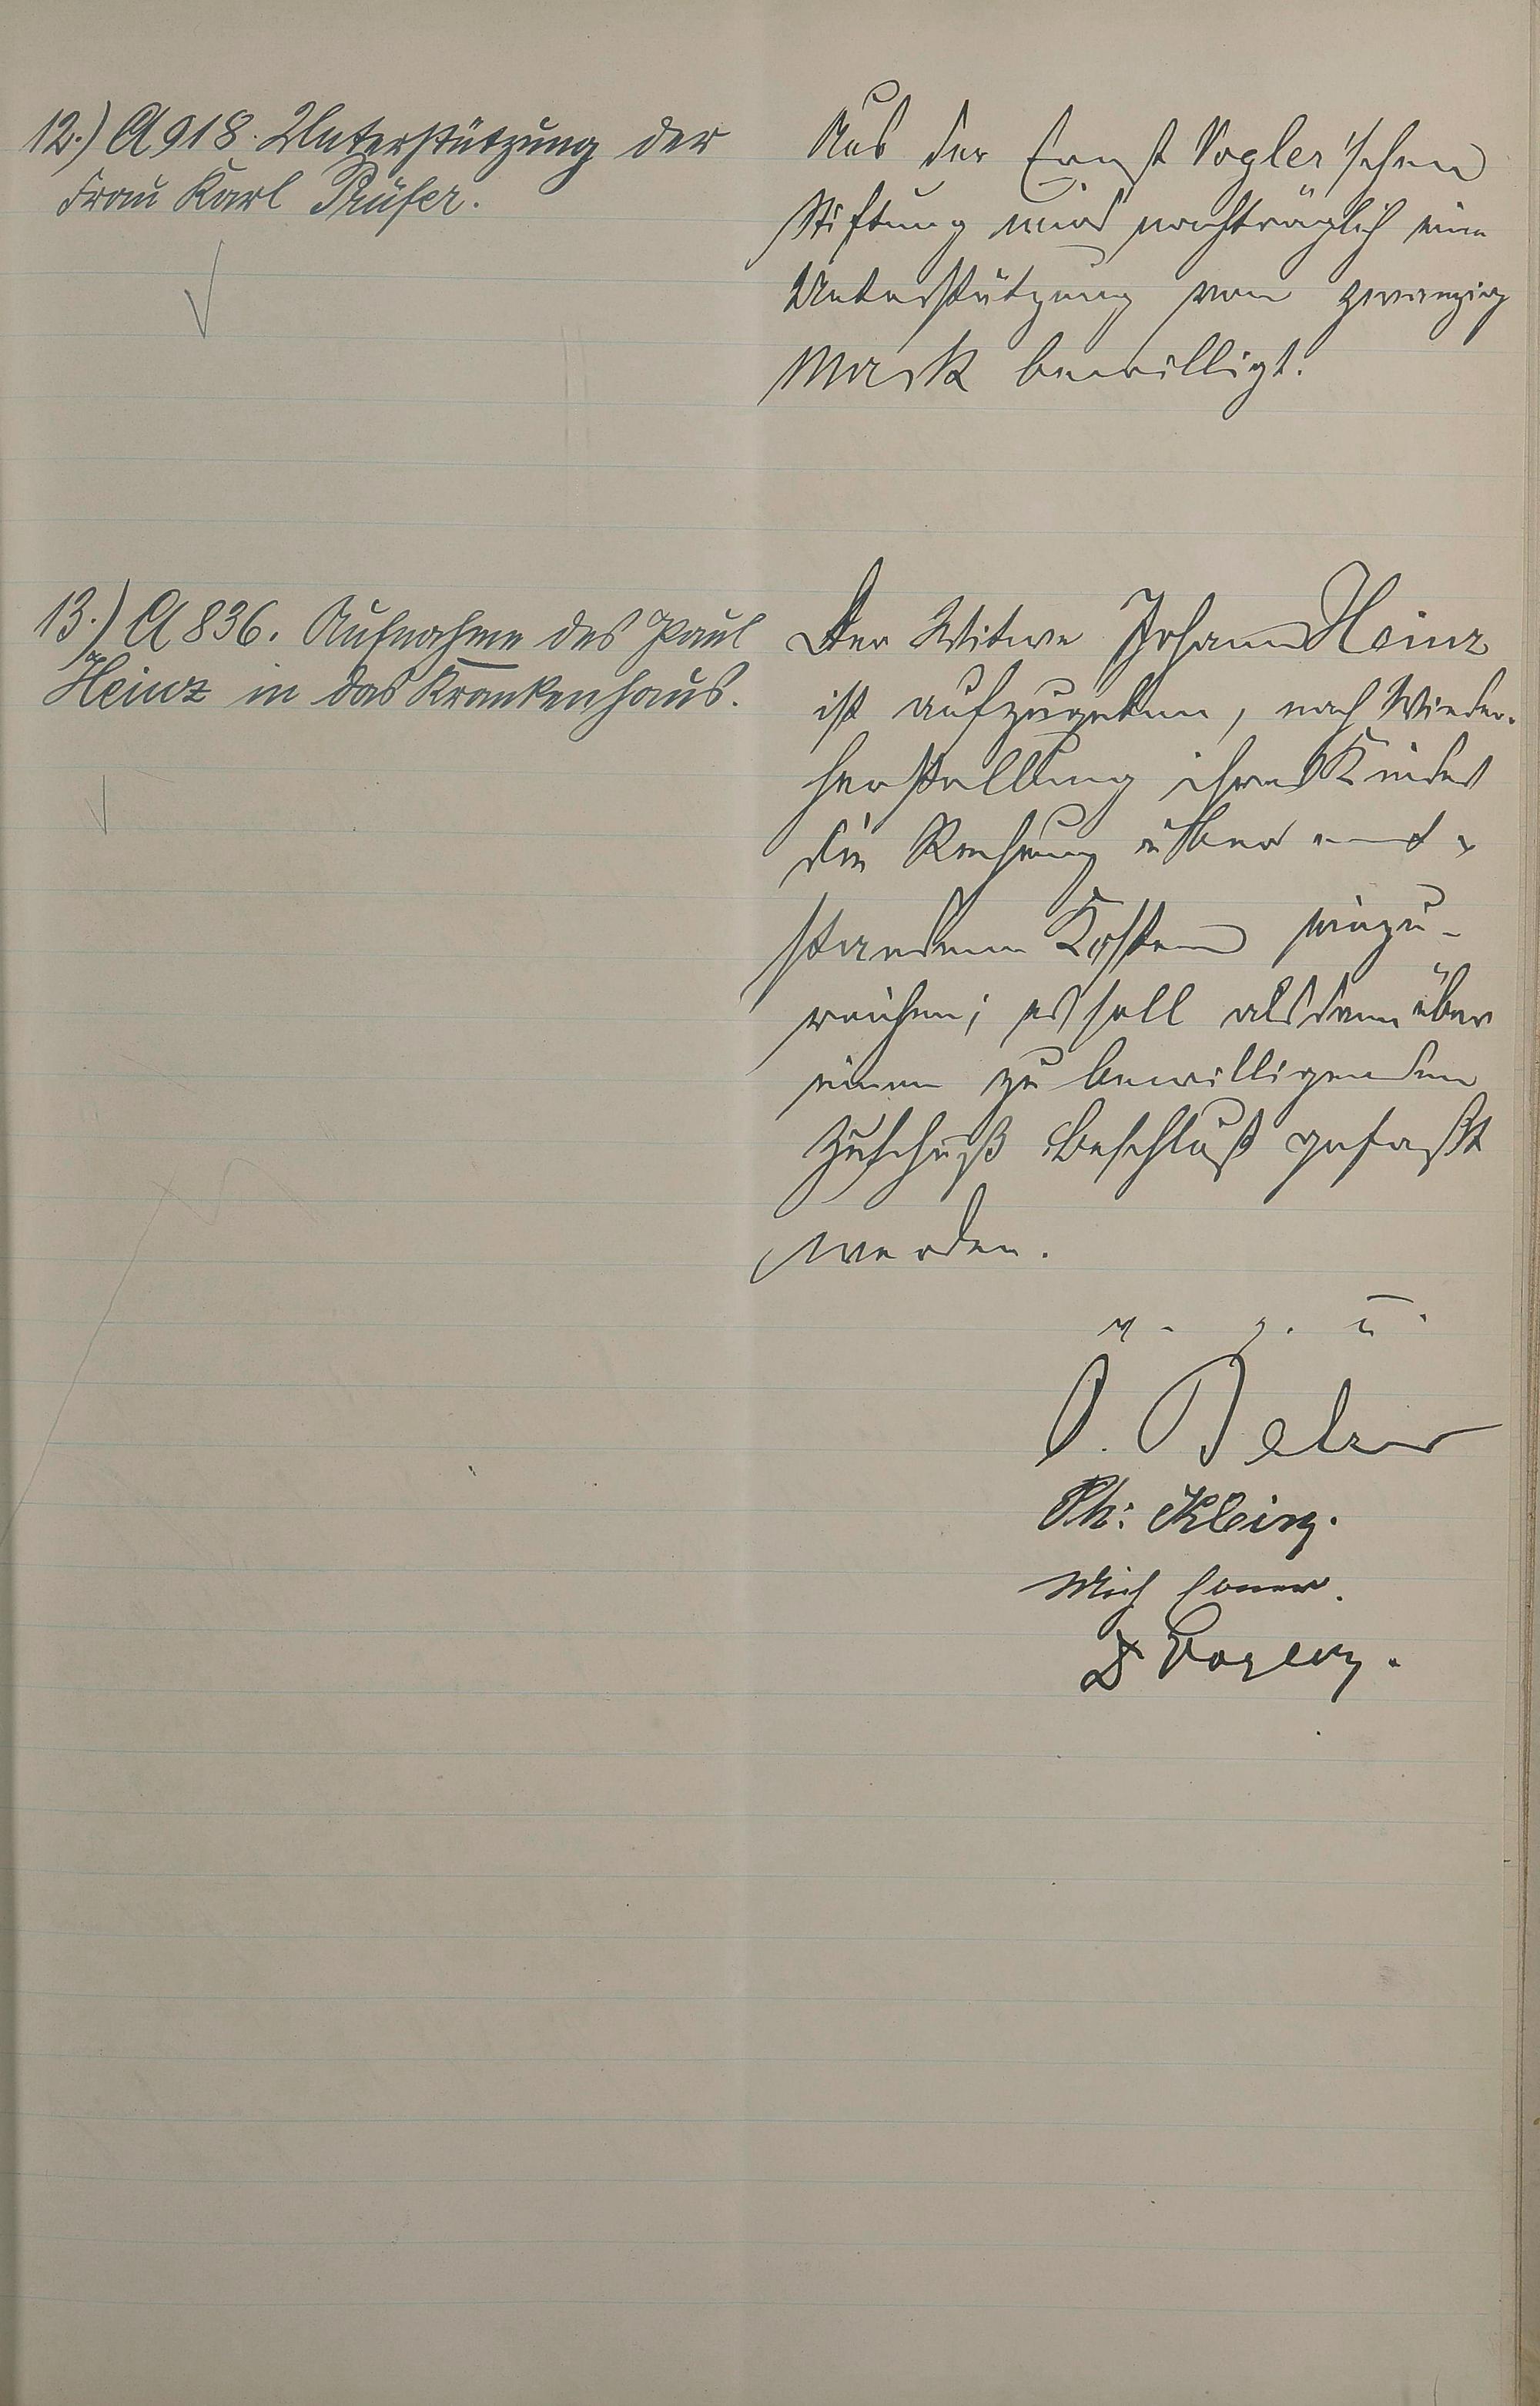 12.) A 918. Unterstützung der
Frau Karl Prüfer.
Aus der Ernst Vogler'schen
Stiftung wird nachträglich eine
Unterstützung von zwanzig
Mark bewilligt.
13.) A 836. Aufnahme des Paul
Heinz in das Krankenhaus.
Der Witwe Johann Heinz
ist aufzugeben, nach Wieder-
herstellung ihres Kindes
die Rechnung über ent-
standene Kosten einzu-
reichen; es soll alsdann über
einen zu bewilligenden
Zuschuß Beschluß gefaßt
werden.
v. g. u.
Ph: Klein.
Mich